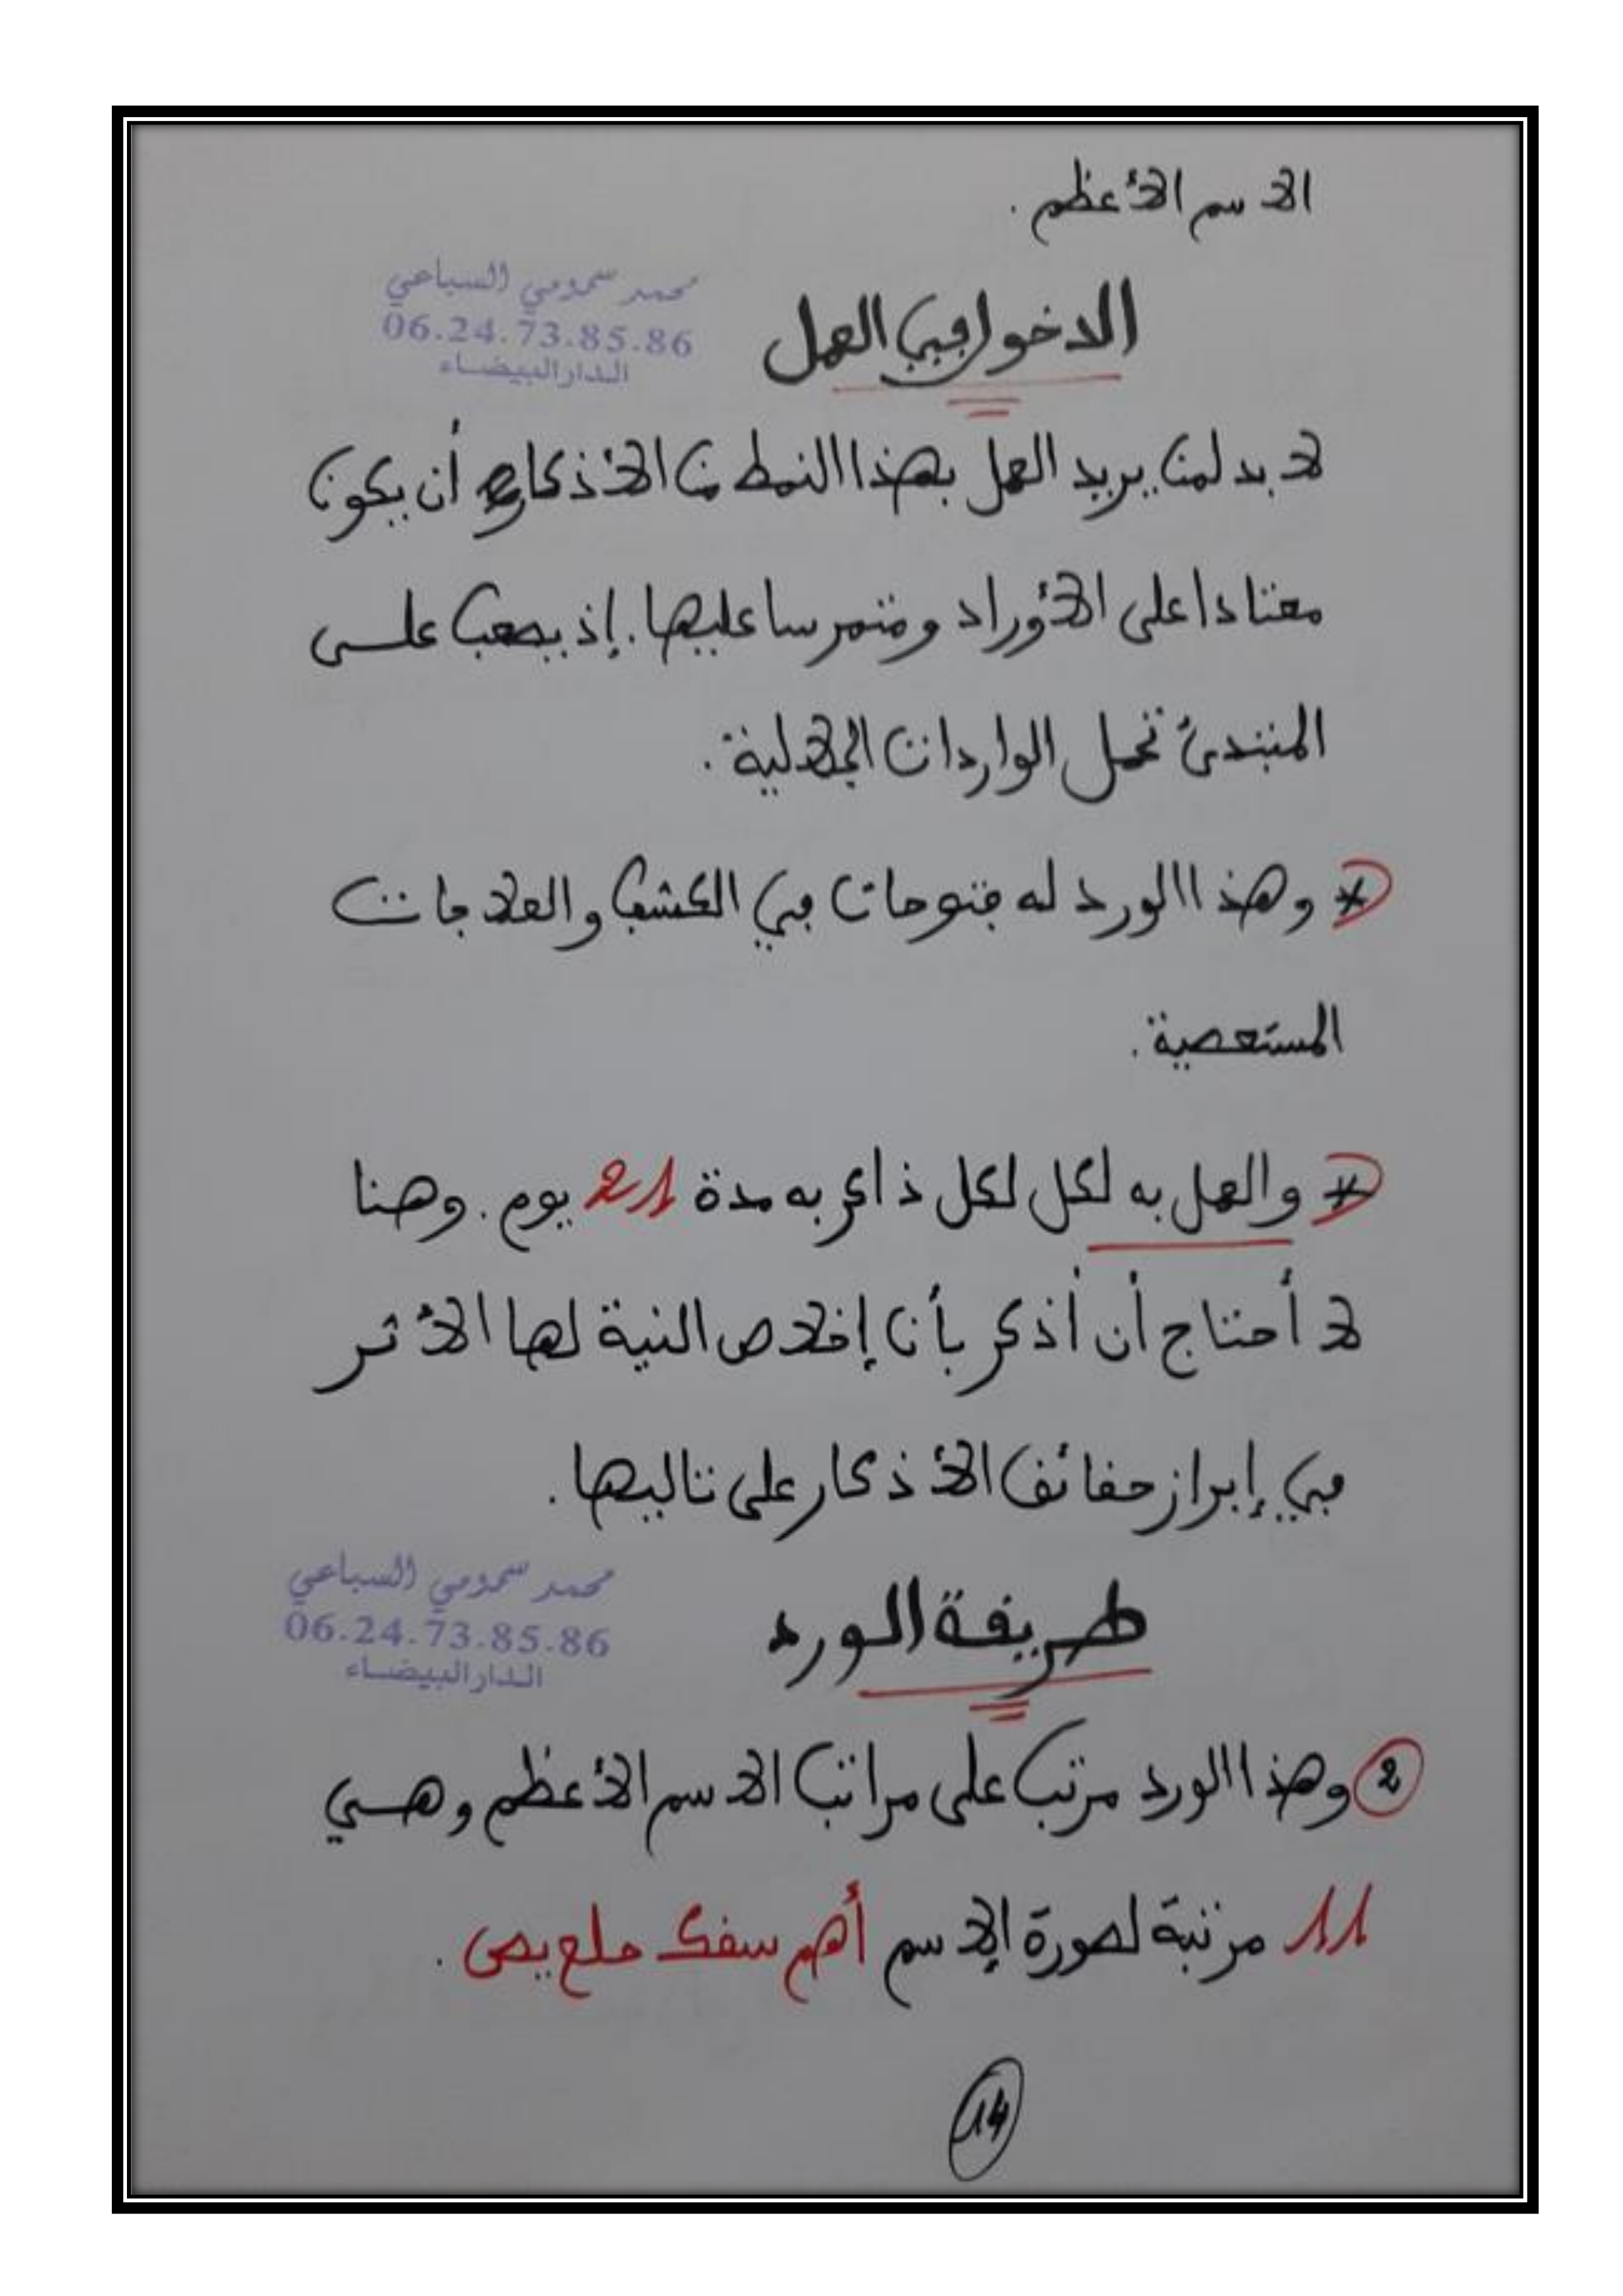 الاسم الأعظم.
محمد سمومي السباعي
06.24.73.85.86
الدار البيضاء
الدخول في العمل
لا بد لمن يريد العمل بهذا النمط من الأذكار أن يكون
معتادا على الأوراد ومتمرسا عليها. إذ يصعب على
المبتدئ تحمل الواردات الجلالية.
* وهذا الورد له فتوحات في الكشف والعلاجات
المستعصية.
* والعمل به لكل لكل ذاكر به مدة 21 يوم. وهنا
لا أحتاج أن أذكر بأن إخلاص النية لها الأثر
في إبراز حقائق الأذكار على تاليها.
محمد سمومي السباعي
06.24.73.85.86
الدار البيضاء
طريقة الورد
2 وهذا الورد مرتب على مراتب الاسم الأعظم وهي
11 مرتبة لصورة الإسم أهم سقك حلع يص.
14